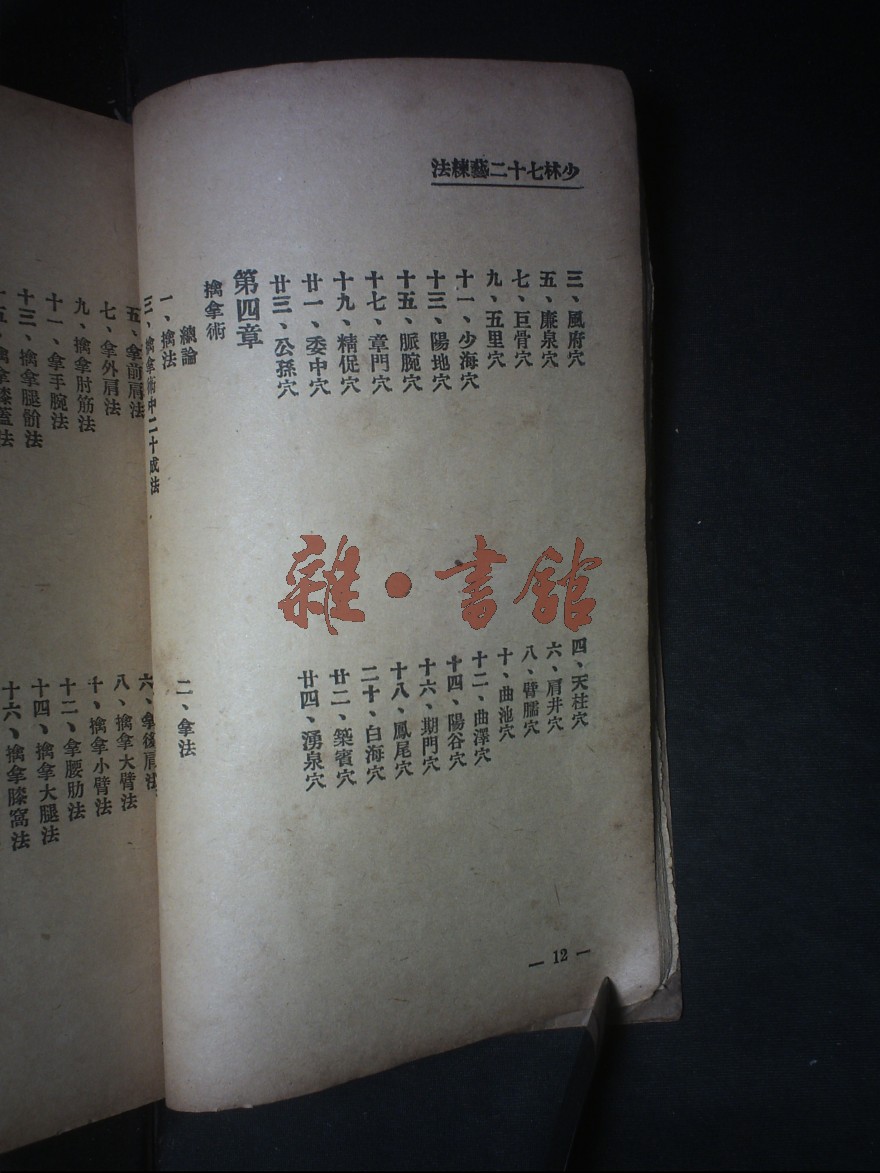 少林七十二藝練法
三、風府穴
四、天柱穴
五、廉泉穴
六、肩井穴
七、巨骨穴
八、臂臑穴
九、五里穴
十、曲池穴
十一、少海穴
十二、曲澤穴
十三、陽地穴
十四、陽谷穴
十五、脈腕穴
十六、期門穴
十七、章門穴
十八、鳳尾穴
十九、精促穴
二十、白海穴
廿一、委中穴
廿二、築賓穴
廿三、公孫穴
廿四、湧泉穴
第四章
擒拿術
總論
一、擒法
二、拿法
三、擒拿術中二十成法
五、拿前肩法
六、拿後肩法
七、拿外肩法
八、擒拿大臂法
九、擒拿肘筋法
十、擒拿小臂法
十一、拿手腕法
十二、拿腰肋法
十三、擒拿腿骱法
十四、擒拿大腿法
十五、擒拿膝蓋法
十六、擒拿膝窩法
— 12 —
雜·書館